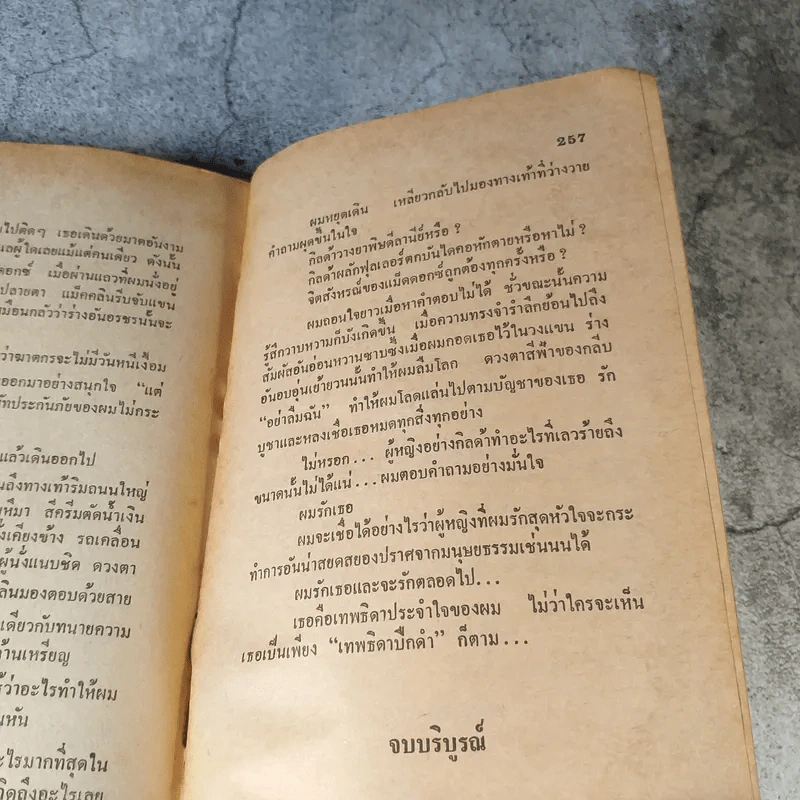 นไปคิดๆ เธอเดินด้วยมาดอันงาม
แลผู้ใดเลยแม้แต่คนเดียว ดังนั้น
ดอกซ์ เมื่อผ่านแถวที่ผมนั่งอยู่
ปลายตา แม็คคลินรีบจับแขน
หมือนกลัวว่าร่างอันอรชรนั้นจะ
ว่าฆาตกรจะไม่มีวันหนีเงื้อม
ออกมาอย่างสนุกใจ “แต่
ษัทประกันภัยของผมไม่กระ
แล้วเดินออกไป
นถึงทางเท้าริมถนนใหญ่
หึมา สีครีมตัดน้ำเงิน
งเคียงข้าง รถเคลื่อน
ผู้นั่งแนบชิด ดวงตา
ลินมองตอบด้วยสาย
เดียวกับทนายความ
ล้านเหรียญ
รู้ว่าอะไรทำให้ผม
นหัน
ะไรมากที่สุดใน
คิดถึงอะไรเลย
257
ผมหยุดเดิน เหลียวกลับไปมองทางเท้าที่ว่างวาย
คำถามผุดขึ้นในใจ
กิลด้าวางยาพิษดีลานีย์หรือ ?
กิลด้าผลักฟุลเลอร์ตกบันไดคอหักตายหรือหาไม่ ?
จิตสังหรณ์ของแม็ดดอกซ์ถูกต้องทุกครั้งหรือ ?
ผมถอนใจยาวเมื่อหาคำตอบไม่ได้ ชั่วขณะนั้นความ
รู้สึกวาบหวามก็บังเกิดขึ้น เมื่อความทรงจำรำลึกย้อนไปถึง
สัมผัสอันอ่อนหวานซาบซึ้งเมื่อผมกอดเธอไว้ในวงแขน ร่าง
อันอบอุ่นเย้ายวนนั้นทำให้ผมลืมโลก ดวงตาสีฟ้าของกลีบ
“อย่าลืมฉัน” ทำให้ผมโลดแล่นไปตามบัญชาของเธอ รัก
บูชาและหลงเชื่อเธอหมดทุกสิ่งทุกอย่าง
ไม่หรอก... ผู้หญิงอย่างกิลด้าทำอะไรที่เลวร้ายถึง
ขนาดนั้นไม่ได้แน่...ผมตอบคำถามอย่างมั่นใจ
ผมรักเธอ
ผมจะเชื่อได้อย่างไรว่าผู้หญิงที่ผมรักสุดหัวใจจะกระ
ทำการอันน่าสยดสยองปราศจากมนุษยธรรมเช่นนนได้
ผมรักเธอและจะรักตลอดไป...
เธอคือเทพธิดาประจำใจของผม ไม่ว่าใครจะเห็น
เธอเป็นเพียง “เทพธิดาปีกดำ” ก็ตาม...
จบบริบูรณ์